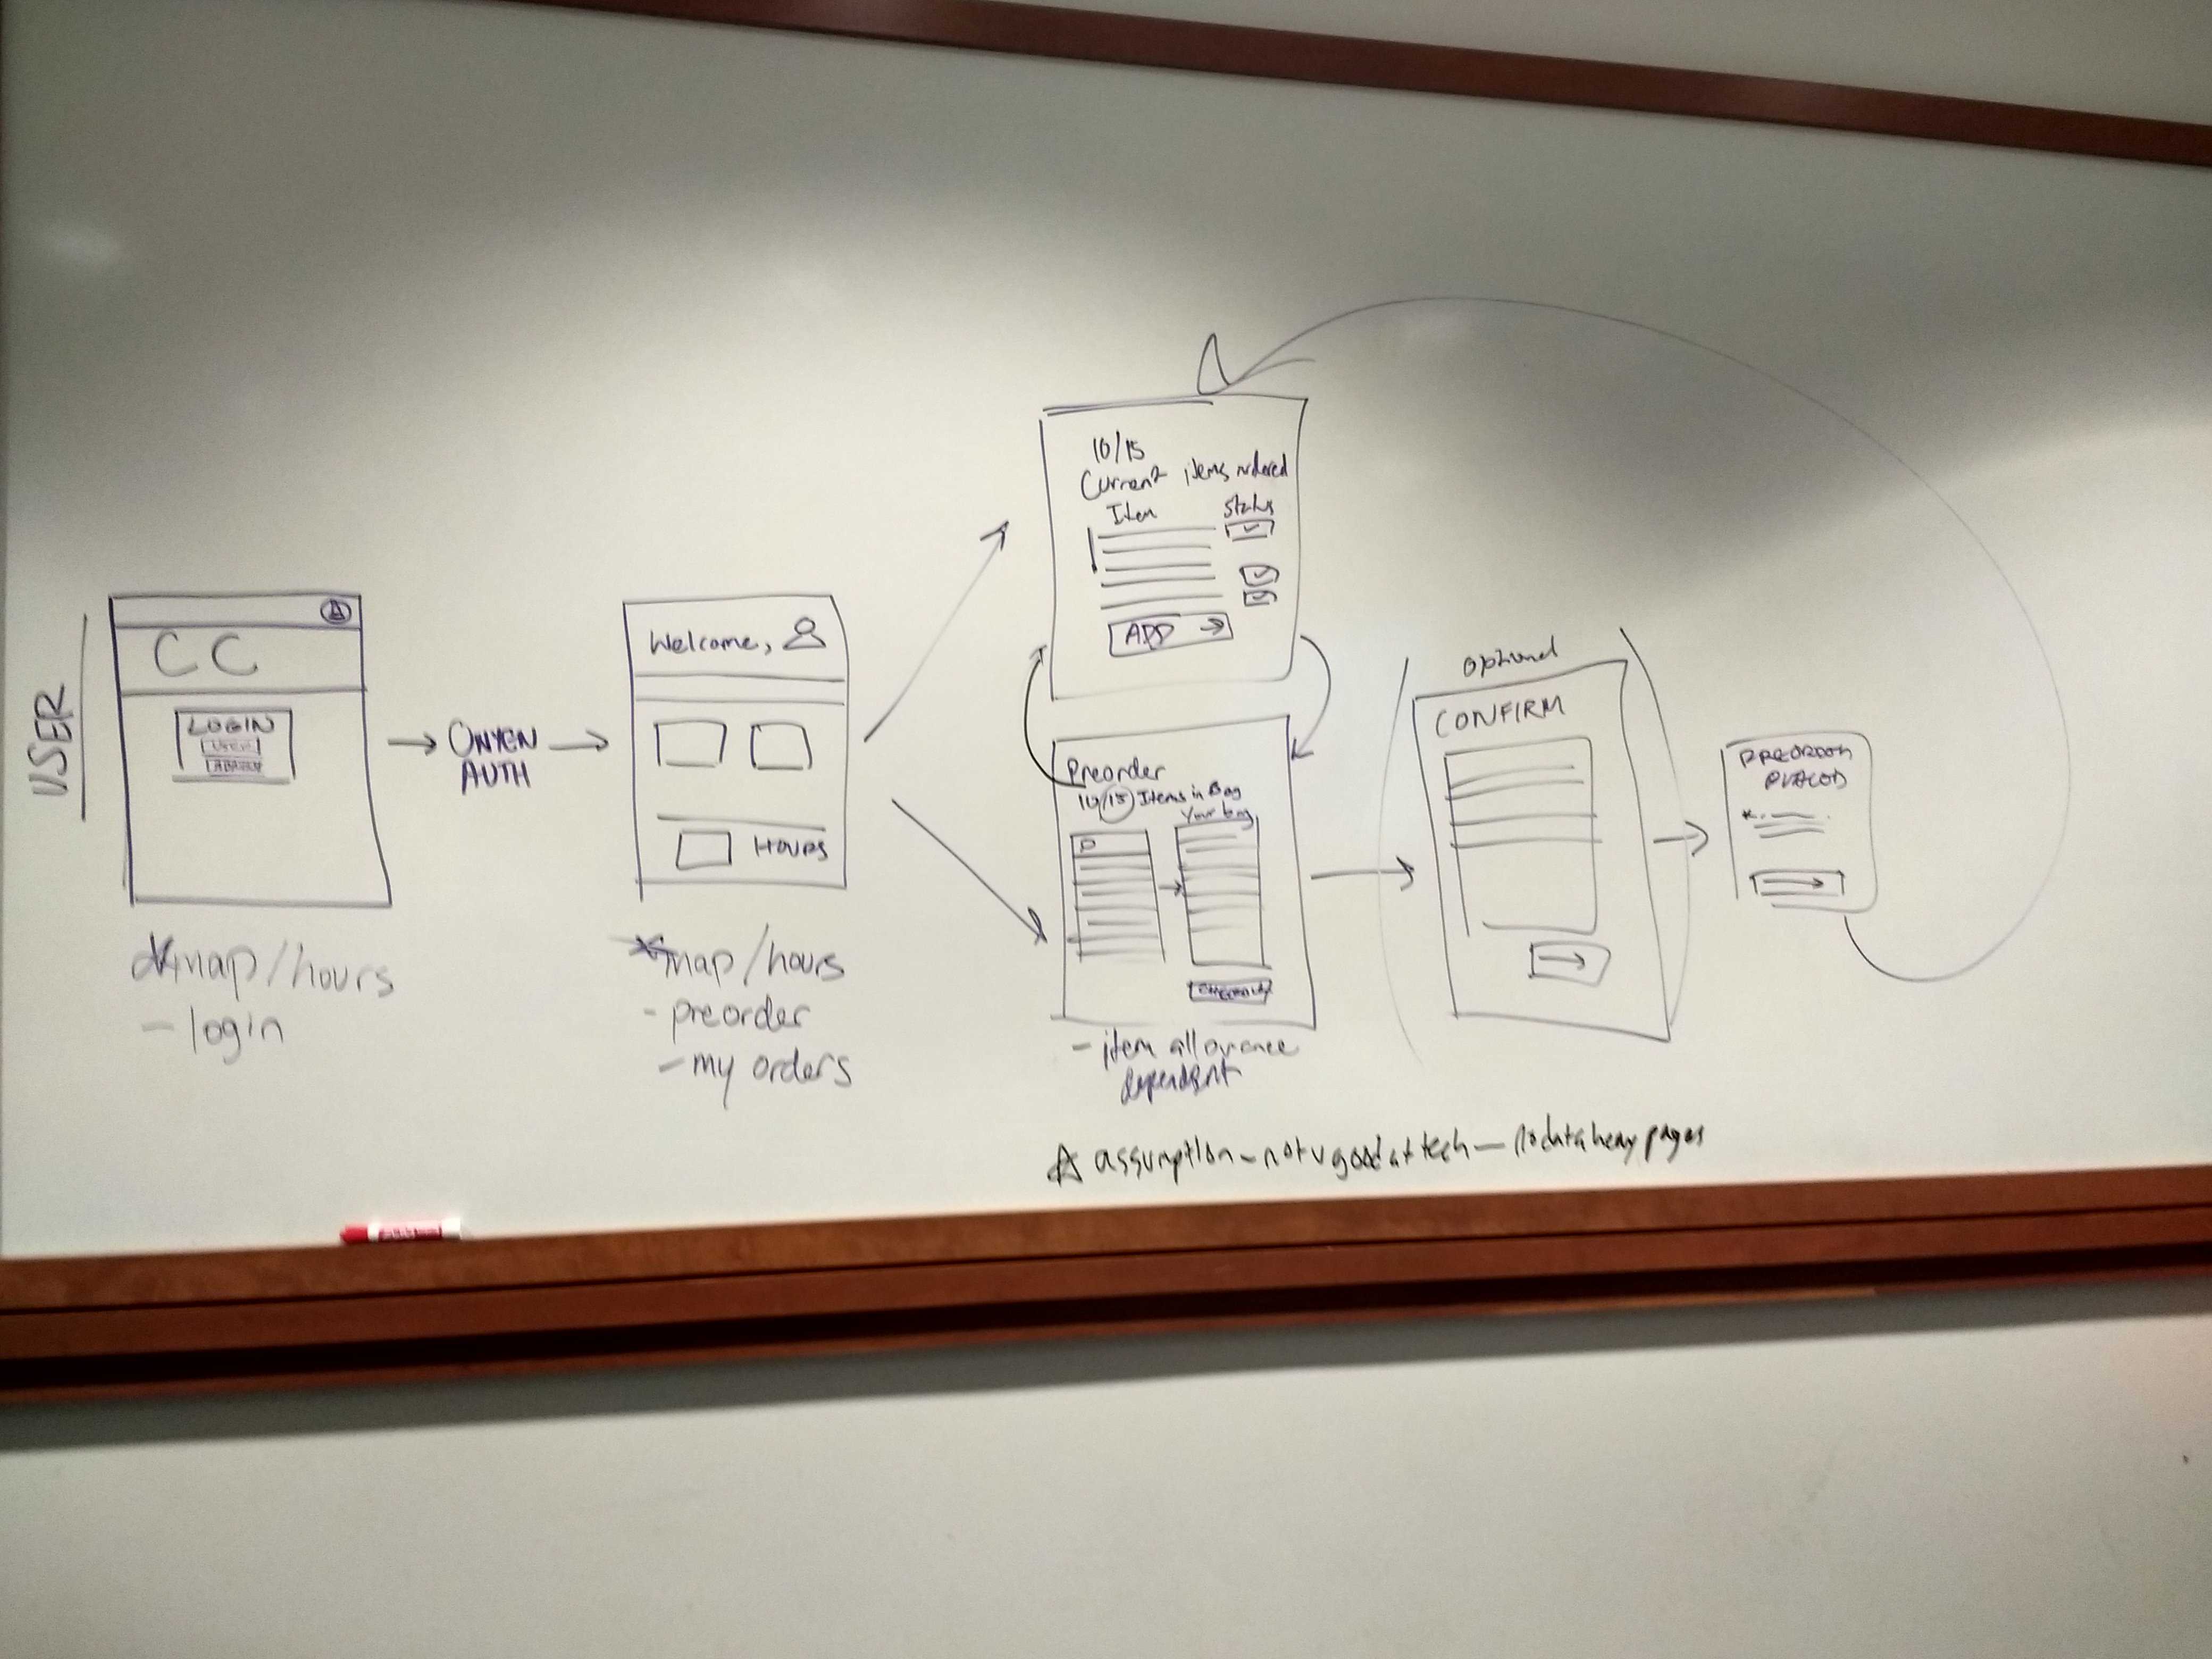 USER
CC
LOGIN
USER
* map/hours
- login
ONYEN
AUTH
Welcome,
HOURS
* map/hours
- preorder
- my orders
10/15
Current items ordered
Item Status
ADD →
Preorder
10/15 Items in Bag
Your bag
CHECKOUT
- item allowance
dependent
optional
CONFIRM
PREORDER
PLACED
assumption - not v good at tech - no data heavy pages